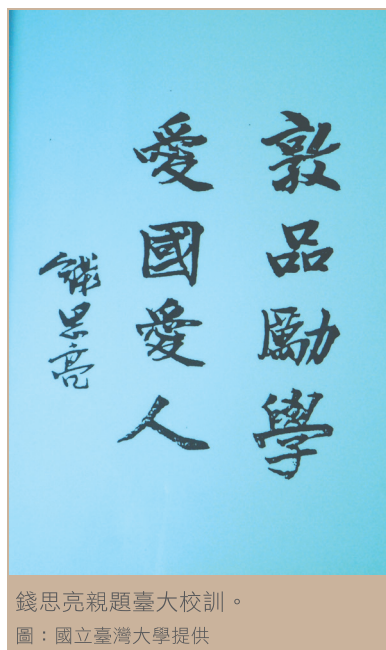 敦品勵學
愛國愛人
錢思亮
錢思亮親題臺大校訓。
圖：國立臺灣大學提供